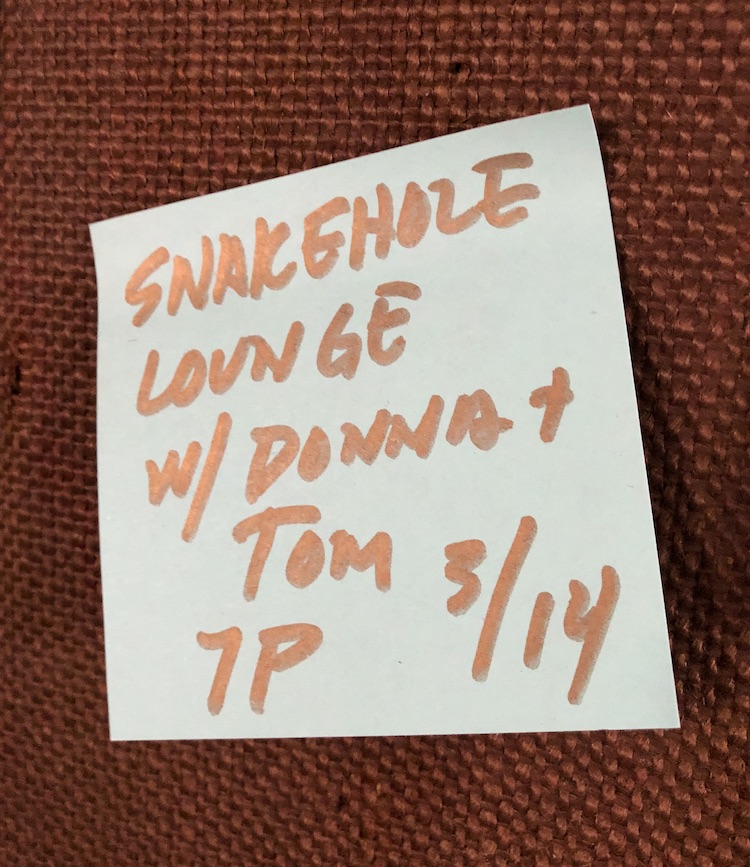 SNAKEHOLE
LOUNGE
W/ DONNA +
TOM 3/14
7P